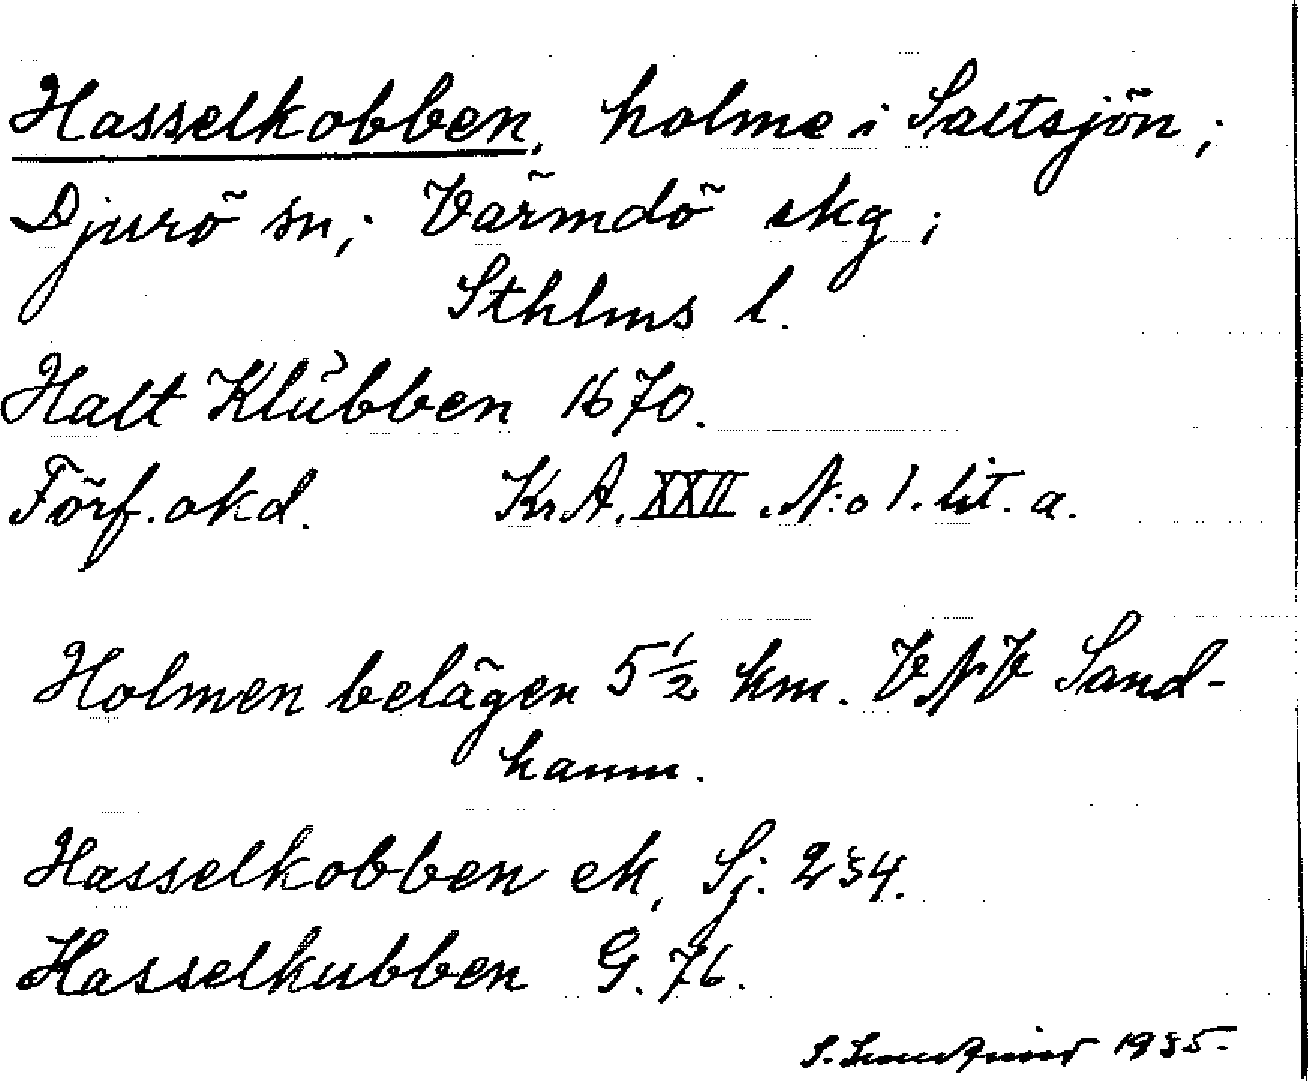 Hasselkobben, holme i Saltsjön;
Djurö sn; Värmdö skg;
Sthlms l.
Halt Klŭbben 1670.
Förf. okd. Kr.A. XXII. N:o 1. lit. a.
Holmen belägen 5 1/2 km. VNV Sand-
hamn.
Hasselkobben ek, Sj. 234.
Hasselkubben G. 76.
S. 1935.